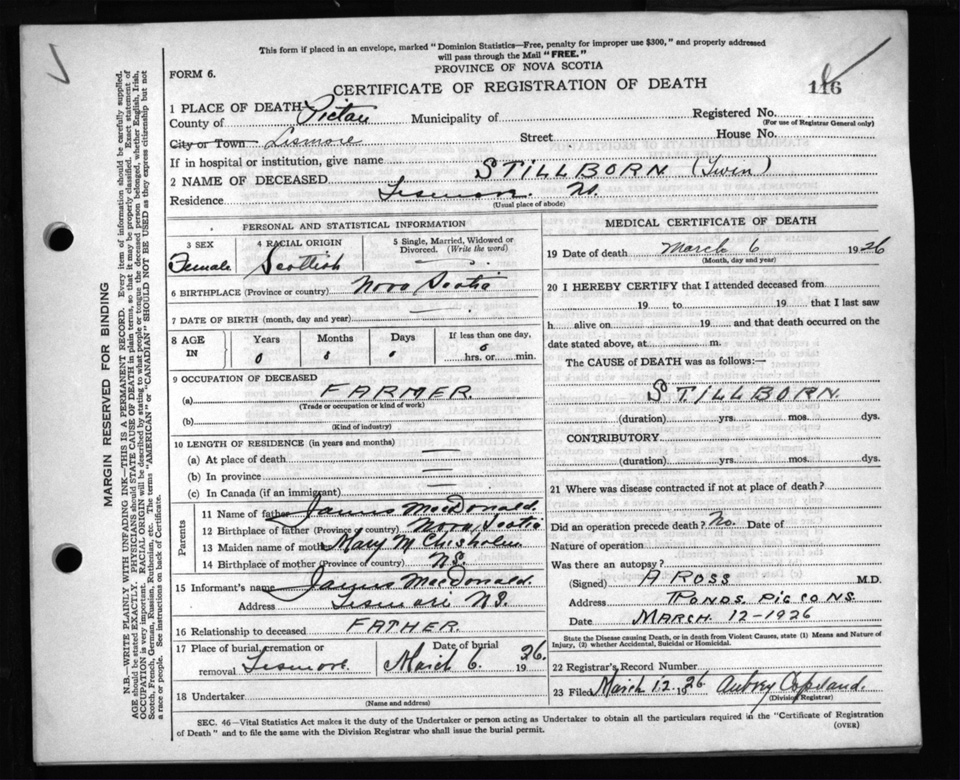 This form if placed in an envelope, marked "Dominion Statistics—Free, penalty for improper use $300," and properly addressed
will pass through the Mail "FREE."
PROVINCE OF NOVA SCOTIA
FORM 6.
CERTIFICATE OF REGISTRATION OF DEATH
116
1 PLACE OF DEATH
County of Pictou Municipality of Registered No.
(For use of Registrar General only)
City or Town - Lismore Street House No.
If in hospital or institution, give name
2 NAME OF DECEASED STILLBORN (Twin)
Residence Lismore. NS.
(Usual place of abode)
PERSONAL AND STATISTICAL INFORMATION
3 SEX
Female
4 RACIAL ORIGIN
Scottish
5 Single, Married, Widowed or
Divorced. (Write the word)
6 BIRTHPLACE (Province or country) Nova Scotia
7 DATE OF BIRTH (month, day and year)
8 AGE
IN
Years
0
Months
0
Days
0
If less than one day,
0
hrs. or min.
9 OCCUPATION OF DECEASED
(a) FARMER.
(Trade or occupation or kind of work)
(b)
(Kind of industry)
10 LENGTH OF RESIDENCE (in years and months)
(a) At place of death
(b) In province
(c) In Canada (if an immigrant)
Parents
11 Name of father James MacDonald.
12 Birthplace of father (Province or country) Nova Scotia
13 Maiden name of mother Mary M Chisholm
14 Birthplace of mother (Province or country) NS.
15 Informant's name James MacDonald.
Address Lismore NS.
16 Relationship to deceased FATHER.
17 Place of burial, cremation or
removal Lismore.
Date of burial
March 6. 1926.
18 Undertaker
(Name and address)
MEDICAL CERTIFICATE OF DEATH
19 Date of death March 6 1926
(Month, day and year)
20 I HEREBY CERTIFY that I attended deceased from
19 to 19 that I last saw
h alive on 19 and that death occurred on the
date stated above, at m.
The CAUSE of DEATH was as follows:—
STILLBORN.
(duration) yrs. mos. dys.
CONTRIBUTORY
(duration) yrs. mos. dys.
21 Where was disease contracted if not at place of death?
Did an operation precede death? No. Date of
Nature of operation
Was there an autopsy?
(Signed) A ROSS M.D.
Address PONDS. PIC CO NS.
Date MARCH. 12 1926
State the Disease causing Death, or in death from Violent Causes, state (1) Means and Nature of
Injury, (2) whether Accidental, Suicidal or Homicidal.
22 Registrar's Record Number
23 Filed March 12 1926 Aubrey Copeland
(Division Registrar)
SEC. 46—Vital Statistics Act makes it the duty of the Undertaker or person acting as Undertaker to obtain all the particulars required in the "Certificate of Registration
of Death" and to file the same with the Division Registrar who shall issue the burial permit.
(OVER)
MARGIN RESERVED FOR BINDING
N.B.—WRITE PLAINLY WITH UNFADING INK—THIS IS A PERMANENT RECORD. Every item of information should be carefully supplied.
AGE should be stated EXACTLY. PHYSICIANS should STATE CAUSE OF DEATH in plain terms, so that it may be properly classified. Exact statement of
OCCUPATION is very important. RACIAL ORIGIN will be described by stating to what people or tongue the deceased person belonged, whether English, Irish,
Scotch, French, German, Russian, Ruthenian, etc. The terms "AMERICAN" or "CANADIAN" SHOULD NOT BE USED as they express citizenship but not
a race or people. See instructions on back of Certificate.